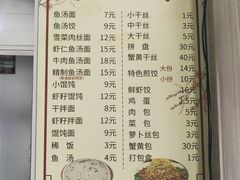 鱼汤面 7元
鱼汤饺 9元
雪菜肉丝面 12元
虾仁鱼汤面 15元
牛肉鱼汤面 18元
精制鱼汤面 15元
小馄饨 9元
虾籽馄饨 9元
干拌面 8元
虾籽面 8元
馄饨面 9元
稀饭 3元
鱼汤 4元
小干丝 9元
中干丝 12元
大干丝 15元
拼盘 30元
蟹黄干丝 40元
特色煎饺 大份 14元
小份 10元
鲜虾饺 15元
鸡蛋 2.5元
肉包 3元
菜包 3元
萝卜丝包 3元
蟹黄包 30元
打包盒 1元